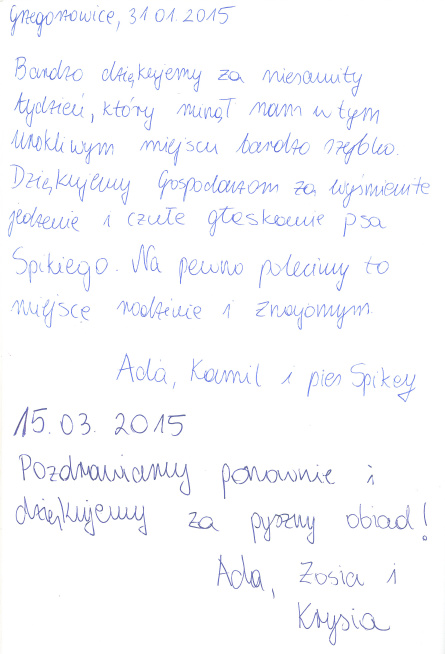 Grzegorzowice, 31.01.2015
Bardzo dziękujemy za niesamity
tydzień, który minął nam w tym
urokliwym miejscu bardzo szybko.
Dziękujemy Gospodarzom za wyśmienite
jedzenie i czułe głaskanie psa
Spikiego. Na pewno polecimy to
miejsce rodzinie i znajomym
Ada, Kamil i pies Spikey
15.03.2015
Pozdrawiamy ponownie i
dziękujemy za pyszny obiad!
Ada, Zosia i
Krysia